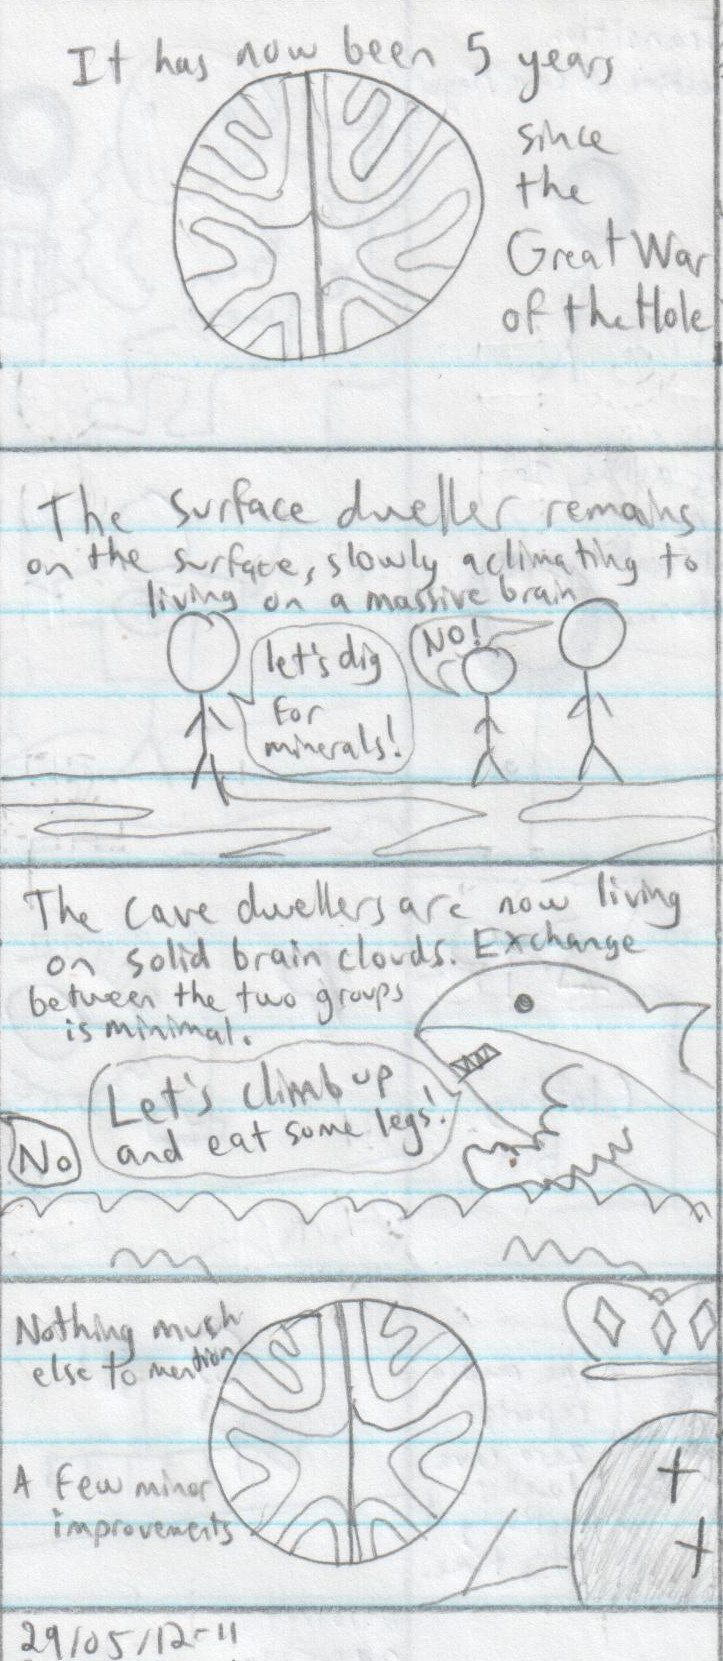 It has now been 5 years
since
the
Great War
of the Hole
The surface dweller remains
on the surface, slowly aclimating to
living on a massive brain
let's dig
for
minerals!
NO!
The cave dwellers are now living
on solid brain clouds. Exchange
between the two groups
is minimal.
Let's climb up
and eat some legs!
No
Nothing mush
else to mention
A few minor
improvements
29/05/12-11